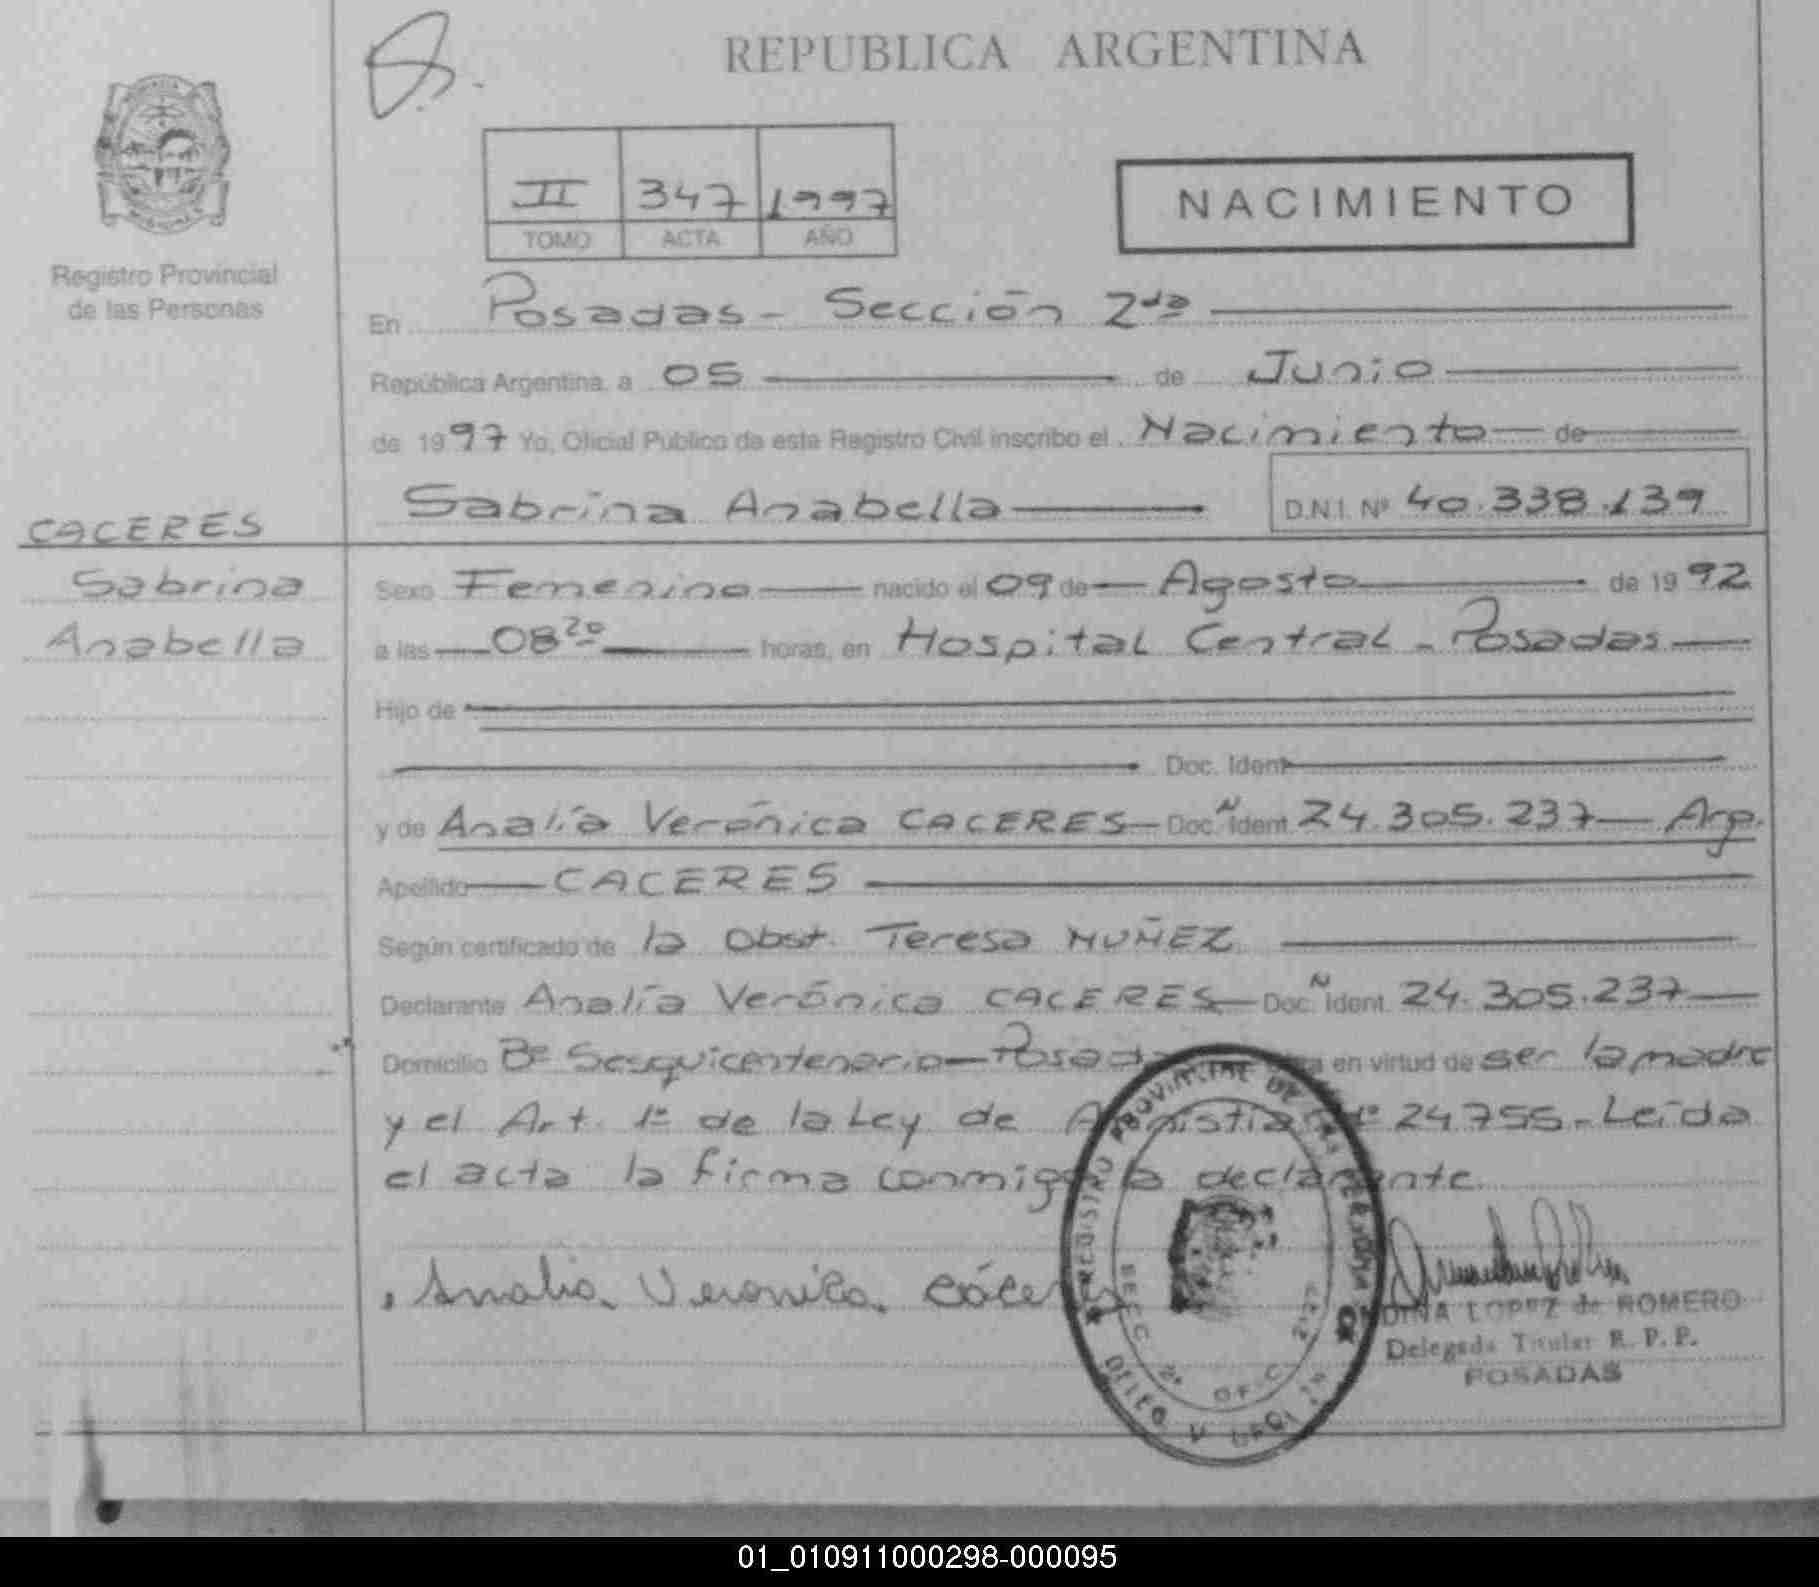 REPUBLICA ARGENTINA
II 347 1997
TOMO ACTA AÑO
NACIMIENTO
Registro Provincial
de las Personas
En Posadas - Sección 2da
República Argentina, a 05 de Junio
de 1997 Yo, Oficial Público de este Registro Civil inscribo el Nacimiento de
Sabrina Anabella D.N.I. Nº 40.338.139
CACERES
Sabrina
Anabella
Sexo Femenino nacido el 09 de Agosto de 1992
a las 08 20 horas, en Hospital Central - Posadas
Hijo de
Doc. Ident
y de Analía Verónica CACERES Doc. Ident. 24.305.237 Arg.
Apellido CACERES
Según certificado de la Obst. Teresa NUÑEZ
Declarante Analía Verónica CACERES Doc. Ident. 24.305.237
Domicilio Bº Sesquicentenario - Posad en virtud de ser la madre
y el Art. 1º de la Ley de Amnistia Nº 24.755 - Leída
el acta la firma conmigo la declarante.
Analia Veronica Cácer
REGISTRO PROVINCIAL DE LAS PERSONAS
SECC. 2º OFIC.
DINA LOPEZ de ROMERO
Delegada Titular R. P. P.
POSADAS
01_010911000298-000095